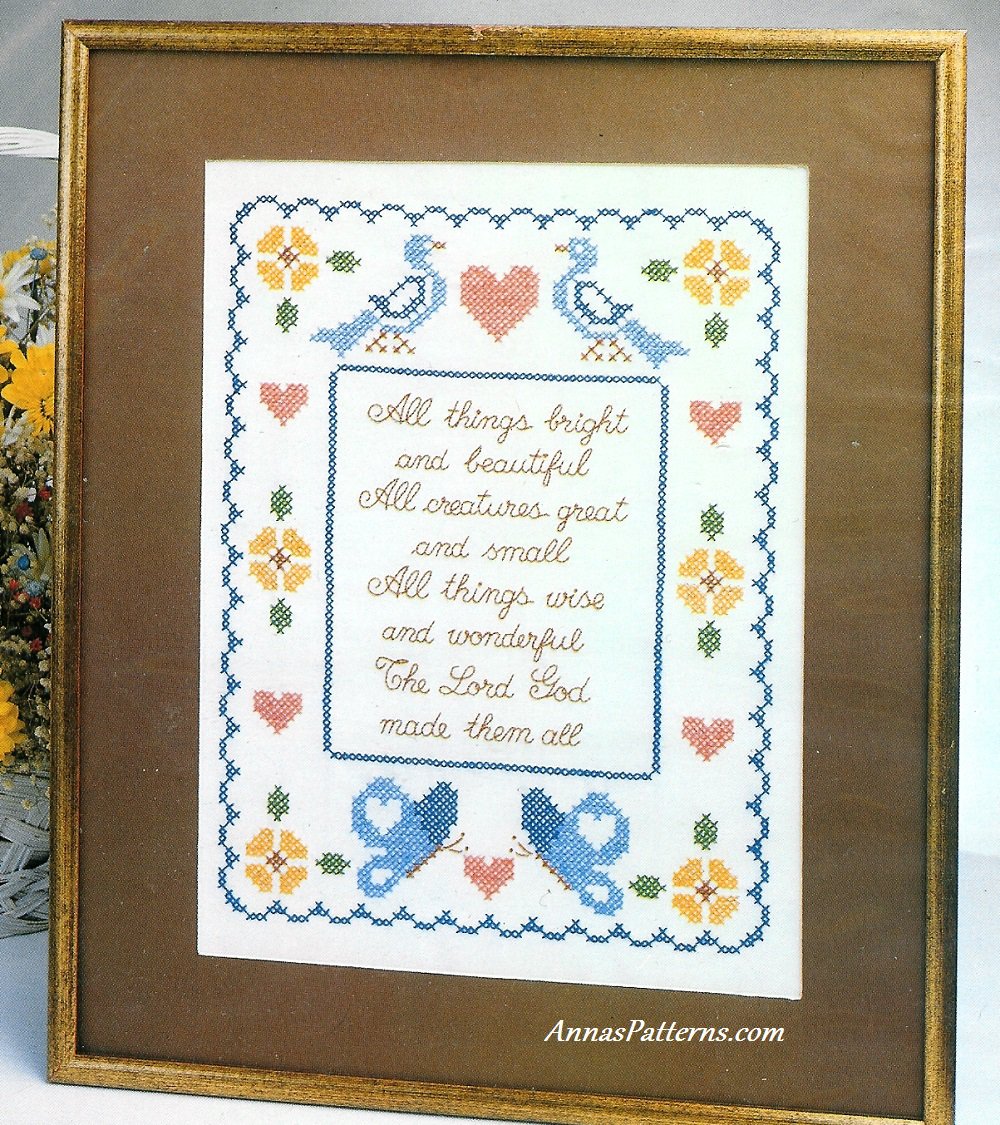 All things bright
and beautiful
All creatures great
and small
All things wise
and wonderful
The Lord God
made them all
AnnasPatterns.com